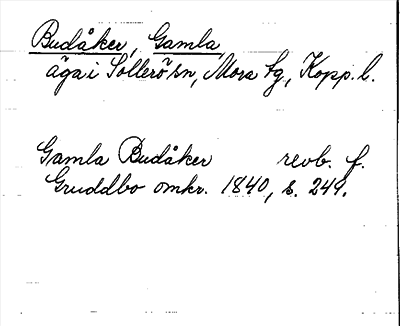 Budåker, Gamla
äga i Sollerö sn, Mora tg, Kopp. l.
Gamla Budåker revb. f.
Gruddbo omkr. 1840, s. 249.